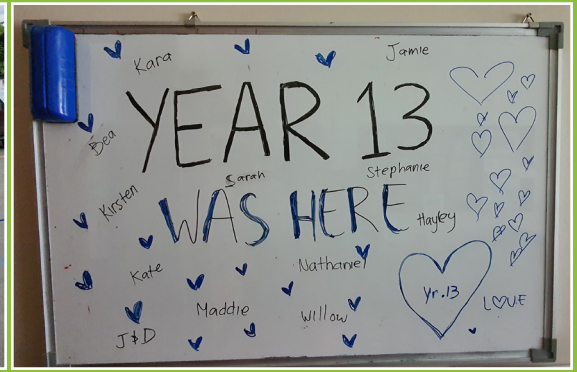 Kara
Jamie
YEAR 13
Bea
Sarah
Stephanie
Kirsten
WAS HERE
Hayley
Kate
Nathaniel
Yr.13
LOVE
Maddie
Willow
J&D